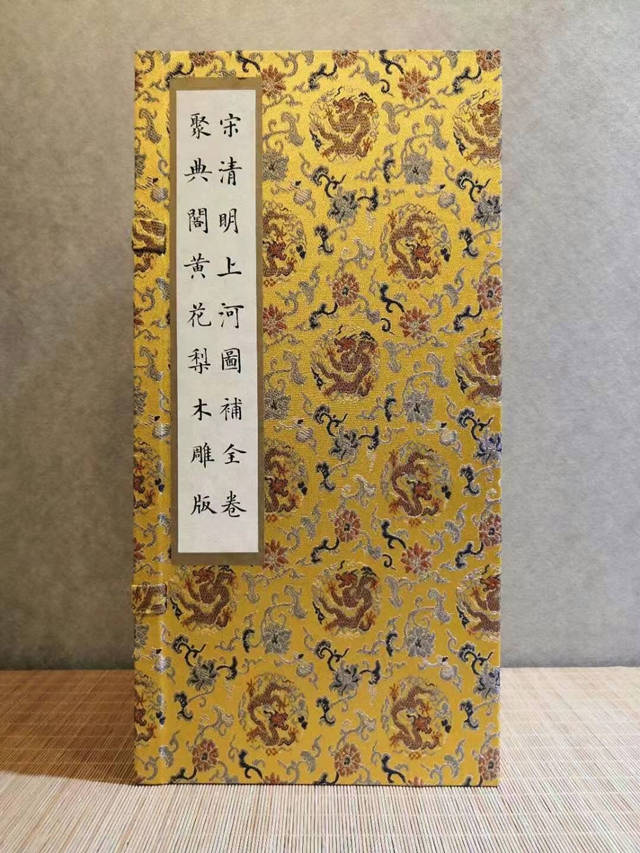 宋清明上河圖補全卷
聚典閣黃花梨木雕版